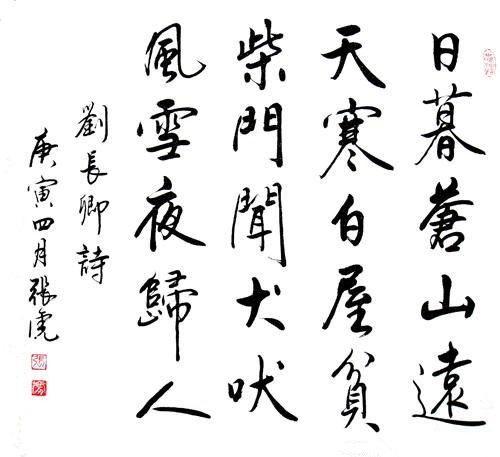 日暮蒼山遠
天寒白屋貧
柴門聞犬吠
風雪夜歸人
劉長卿詩
庚寅四月張虎